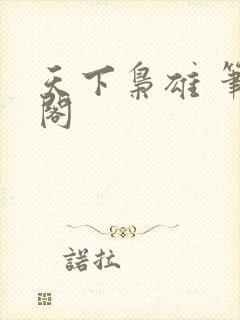 天下梟雄 筆
閣
諾拉